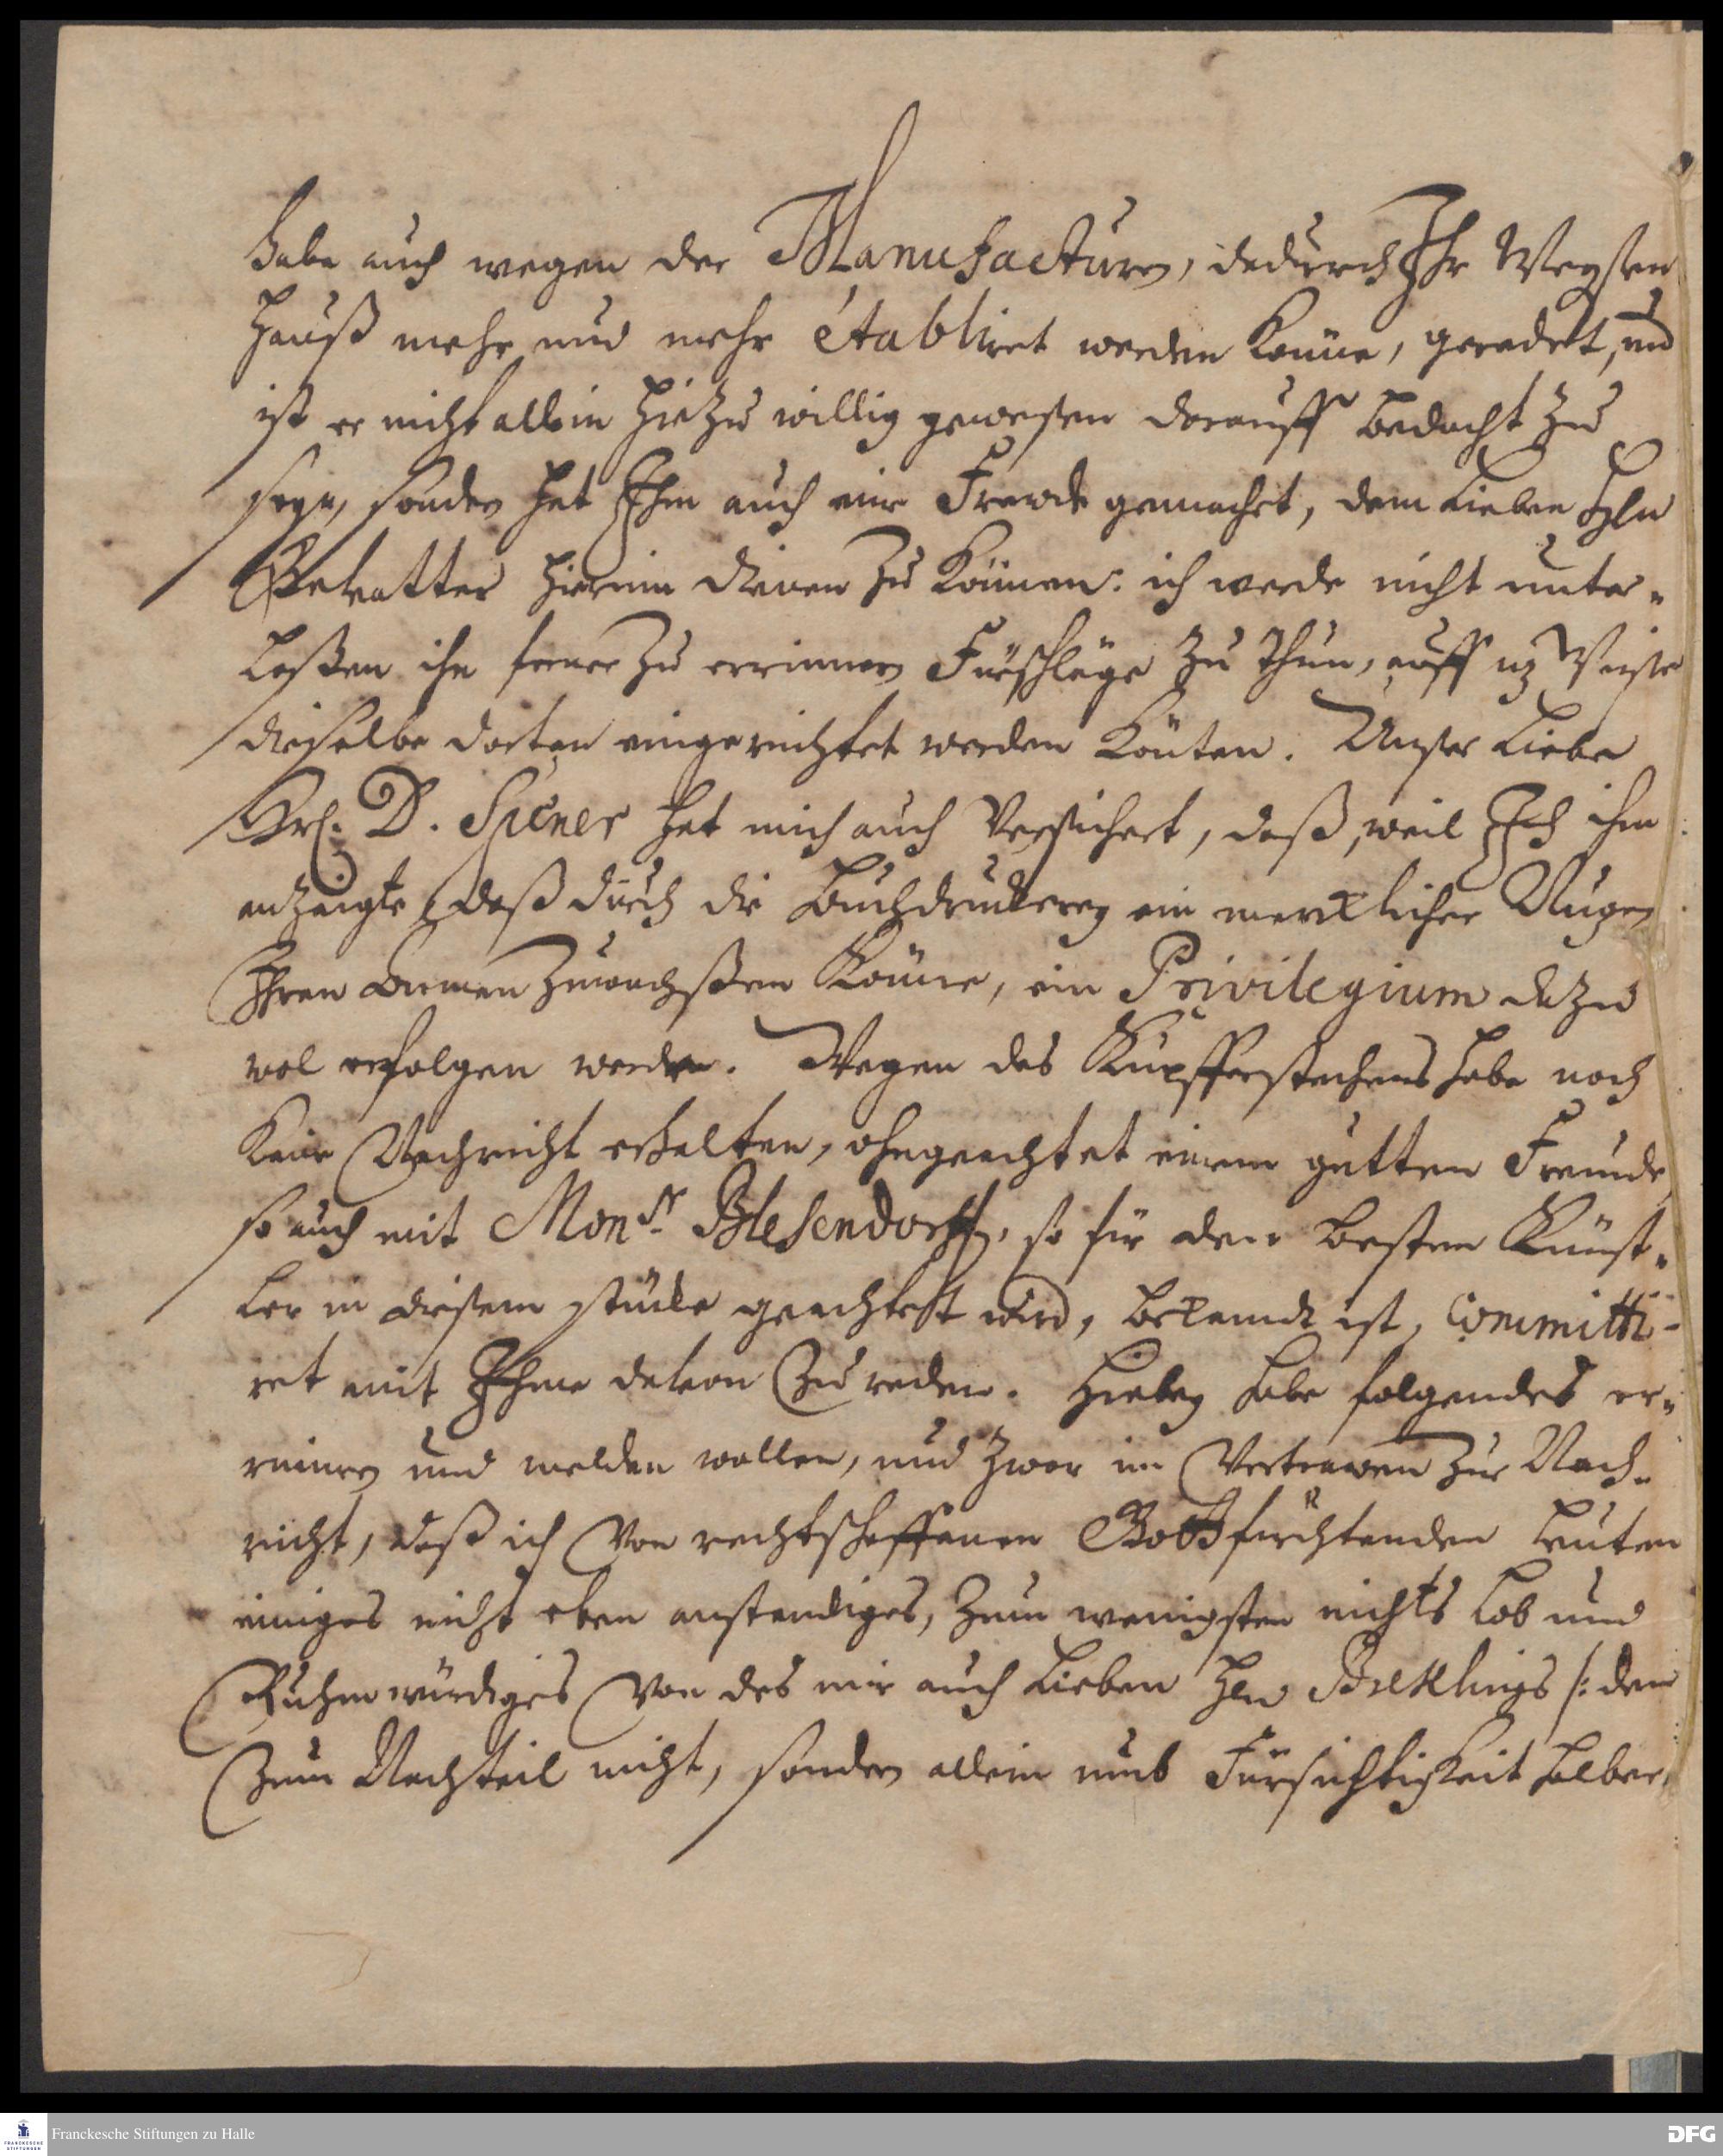 habe auch wegen der Manufacturen, dadurch Ihr Waysen
Hauß mehr und mehr établiret werden könne, geredet, und
ist er nicht allein hiezu willig gewesen darauff bedacht zu
seyn, sondern hat Ihm auch eine Freude gemacht, dem lieben Hln
Gevatter hierinn dienen zu können: ich werde nicht unter-
laßen ihn ferner zu erinnern Fürschläge zu thun, auff Weise
dieselbe dorten eingerichtet werden könten. Unser liebe
Hr. D. Spener hat mich auch versichert, daß, weil Ich ihm
anzeigte, daß durch die Buchdruckerey ein mercklicher Nuzen
Ihren Armen zuwachßen könne, ein Privilegium dazu
wol erfolgen werde. Wegen des Kupfferstechens habe noch
keine Nachricht erhalten, ohngeachtet einem gutten Freunde,
so auch mit Monsr. Blesendorff, so für den besten Künst-
ler in diesem stücke geachtet wird, bekandt ist, committi-
ret mit Ihme davon zu reden. Hiebey habe folgendes er-
innern und melden wollen, und zwar im Vertrawen zur Nach-
richt, daß ich von rechtschaffenen Gottfürchtenden Leuten
einiges nicht eben anstendiges, zum wenigsten nichts Lob und
Ruhmwürdiges von des mir auch lieben Hln Brecklings /: dem
zum Nachteil nicht, sondern allein umb Fürsichtigkeit halber,
Franckesche Stiftungen zu Halle
FRANCKESCHE
STIFTUNGEN
DFG